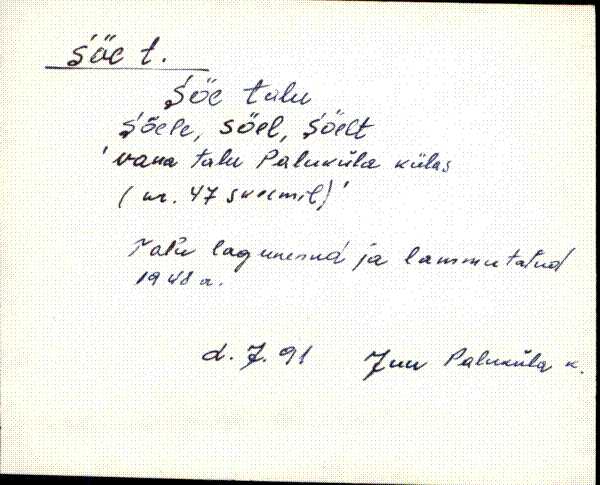 Söe t.
Söe talu
Sõele, söel, Söelt
'vana talu Paluküla külas
(nr. 47 skeemil)'
Talu lagunenud ja lammutatud
1948 a.
d. 7. 91 Juu Paluküla k.